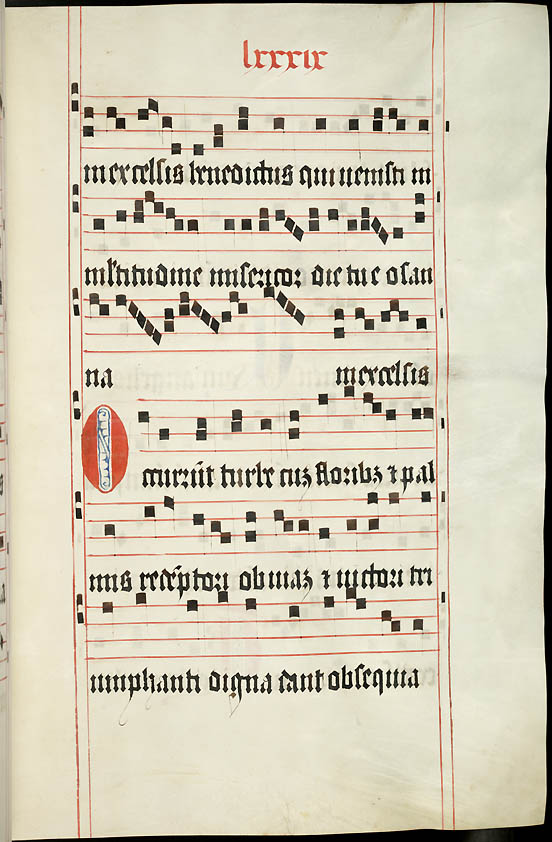 lxxxix
in excelsis benedictus qui uenisti in
ml̄titudine misericor die tu e osan
na in excelsis
Occurrūt turbe cuȝ floribȝ ⁊ pal
mis redēptori obuiaȝ ⁊ uictori tri
umphanti digna dant obsequia